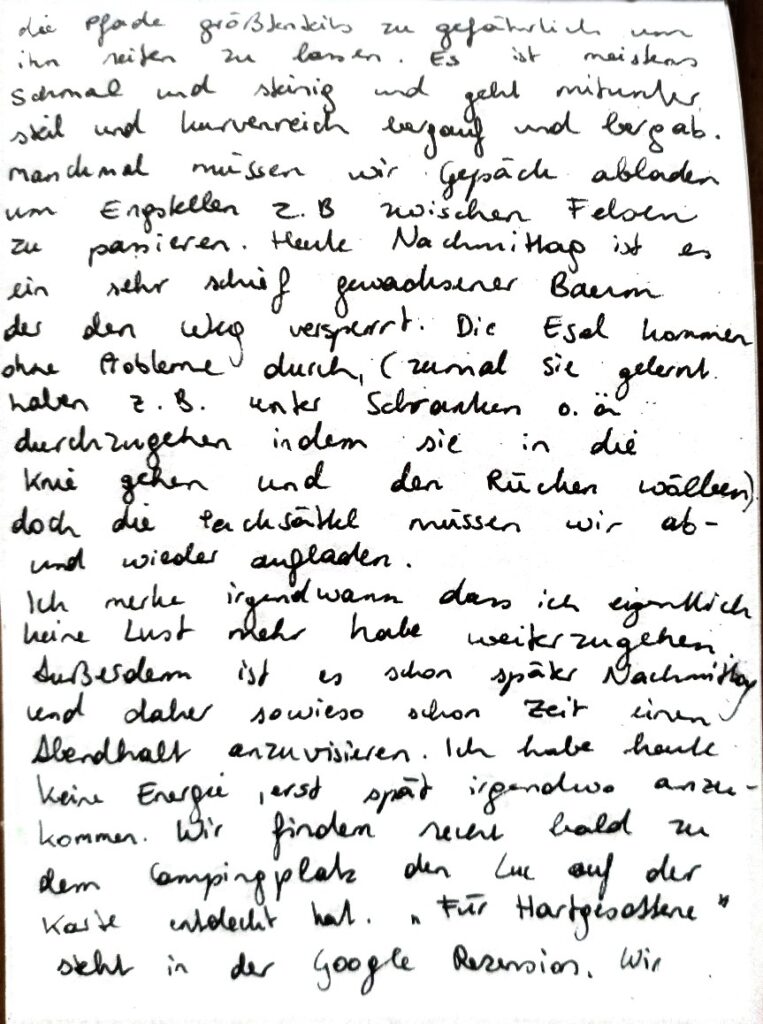 die Pfade größtenteils zu gefährlich um
ihn reiten zu lassen. Es ist meistens
schmal und steinig und geht mitunter
steil und kurvenreich bergauf und bergab.
manchmal müssen wir Gepäck abladen
um Engstellen z.B zwischen Felsen
zu passieren. Heute Nachmittag ist es
ein sehr schief gewachsener Baum
der den Weg versperrt. Die Esel kommen
ohne Probleme durch, (zumal sie gelernt
haben z.B. unter Schranken o.ä
durchzugehen indem sie in die
Knie gehen und den Rücken wölben)
doch die Packsättel müssen wir ab-
und wieder aufladen.
Ich merke irgendwann dass ich eigentlich
keine Lust mehr habe weiterzugehen.
Außerdem ist es schon später Nachmittag
und daher sowieso schon Zeit einen
Abendhalt anzuvisieren. Ich habe heute
keine Energie, erst spät irgendwo anzu-
kommen. Wir finden recht bald zu
dem Campingplatz den Luc auf der
Karte entdeckt hat. „Für Hartgesottene"
steht in der Google Rezension. Wir